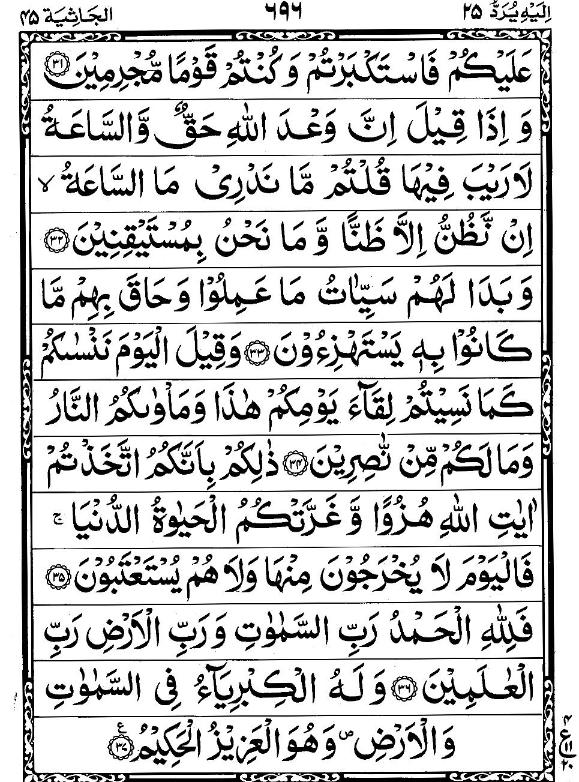 اِلَيْهِ يُرَدُّ ۲۵ ٦٩٦ الجَاثِيَة ۴۵
عَلَيْكُمْ فَاسْتَكْبَرْتُمْ وَكُنْتُمْ قَوْمًا مُّجْرِمِيْنَ ۝۳۱
وَ اِذَا قِيْلَ اِنَّ وَعْدَ اللّٰهِ حَقٌّ وَّالسَّاعَةُ
لَا رَيْبَ فِيْهَا قُلْتُمْ مَّا نَدْرِىْ مَا السَّاعَةُ ۙ
اِنْ نَّظُنُّ اِلَّا ظَنًّا وَّ مَا نَحْنُ بِمُسْتَيْقِنِيْنَ ۝۳۲
وَ بَدَا لَهُمْ سَيِّاٰتُ مَا عَمِلُوْا وَ حَاقَ بِهِمْ مَّا
كَانُوْا بِهٖ يَسْتَهْزِءُوْنَ ۝۳۳ وَقِيْلَ الْيَوْمَ نَنْسٰىكُمْ
كَمَا نَسِيْتُمْ لِقَآءَ يَوْمِكُمْ هٰذَا وَمَاْوٰىكُمُ النَّارُ
وَمَا لَكُمْ مِّنْ نّٰصِرِيْنَ ۝۳۴ ذٰلِكُمْ بِاَنَّكُمُ اتَّخَذْتُمْ
اٰيٰتِ اللّٰهِ هُزُوًا وَّ غَرَّتْكُمُ الْحَيٰوةُ الدُّنْيَا ۚ
فَالْيَوْمَ لَا يُخْرَجُوْنَ مِنْهَا وَلَا هُمْ يُسْتَعْتَبُوْنَ ۝۳۵
فَلِلّٰهِ الْحَمْدُ رَبِّ السَّمٰوٰتِ وَ رَبِّ الْاَرْضِ رَبِّ
الْعٰلَمِيْنَ ۝۳۶ وَ لَهُ الْكِبْرِيَآءُ فِى السَّمٰوٰتِ
وَ الْاَرْضِ ۖ وَهُوَ الْعَزِيْزُ الْحَكِيْمُ ۝۳۷ ع
۴ ع ۱۱ ۲۰